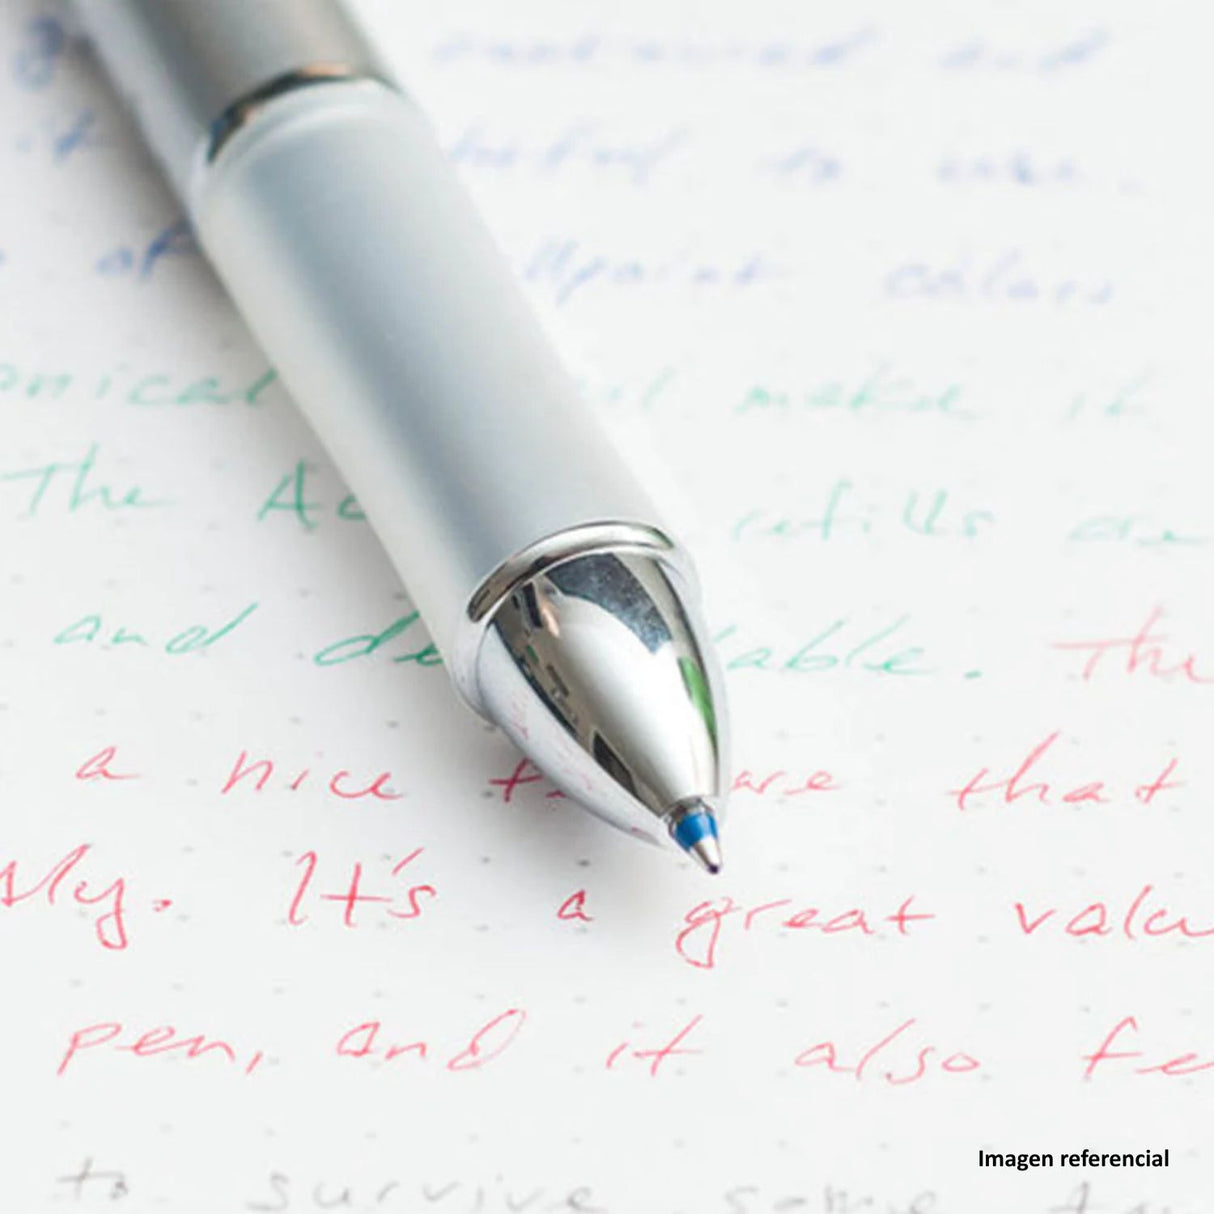 and
it to use.
of colors
onical make it
The refills are
and able. The
a nice that
It's a great valu
pen, and it also fe
to survive some
Imagen referencial